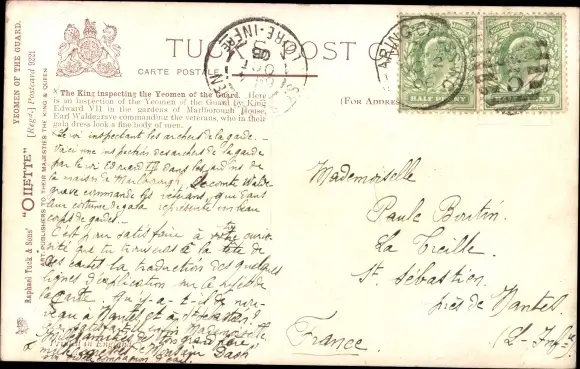 TUCK'S POST C
CARTE POSTALE
(FOR ADDRES
YEOMEN OF THE GUARD.
[Regd.] Postcard 9221
"OILETTE"
ART PUBLISHERS TO THEIR MAJESTIES THE KING & QUEEN
Raphael Tuck & Sons'
The King inspecting the Yeomen of the Guard. Here
is an Inspection of the Yeomen of the Guard by King
Edward VII in the gardens of Marlborough House,
Earl Waldegrave commanding the veterans, who in their
gala dress look a fine body of men.
Le roi inspectant les archers de la garde.
Voici une inspection des archers de la garde
par le roi Edouard VII dans les jardins de
la maison de Marlborough, le comte Walde
grave commande les vétérans, qui dans
leur costume de gala représente un beau
corps de gardes.
C'est pour satisfaire à votre curio
sité que tu trouveras à la tête de
la traduction des quelques
lignes d'explication sur
la carte Qu'y-a-t-il de nou-
veau à Nantes et à St Sébastien?
Mademoiselle
Printed in England
HALFPENNY
HALFPENNY
LOIRE-INFRE
Mademoiselle
Paule Boutin
La Treille
St Sébastien
près de Nantes
France
(L-Infre)